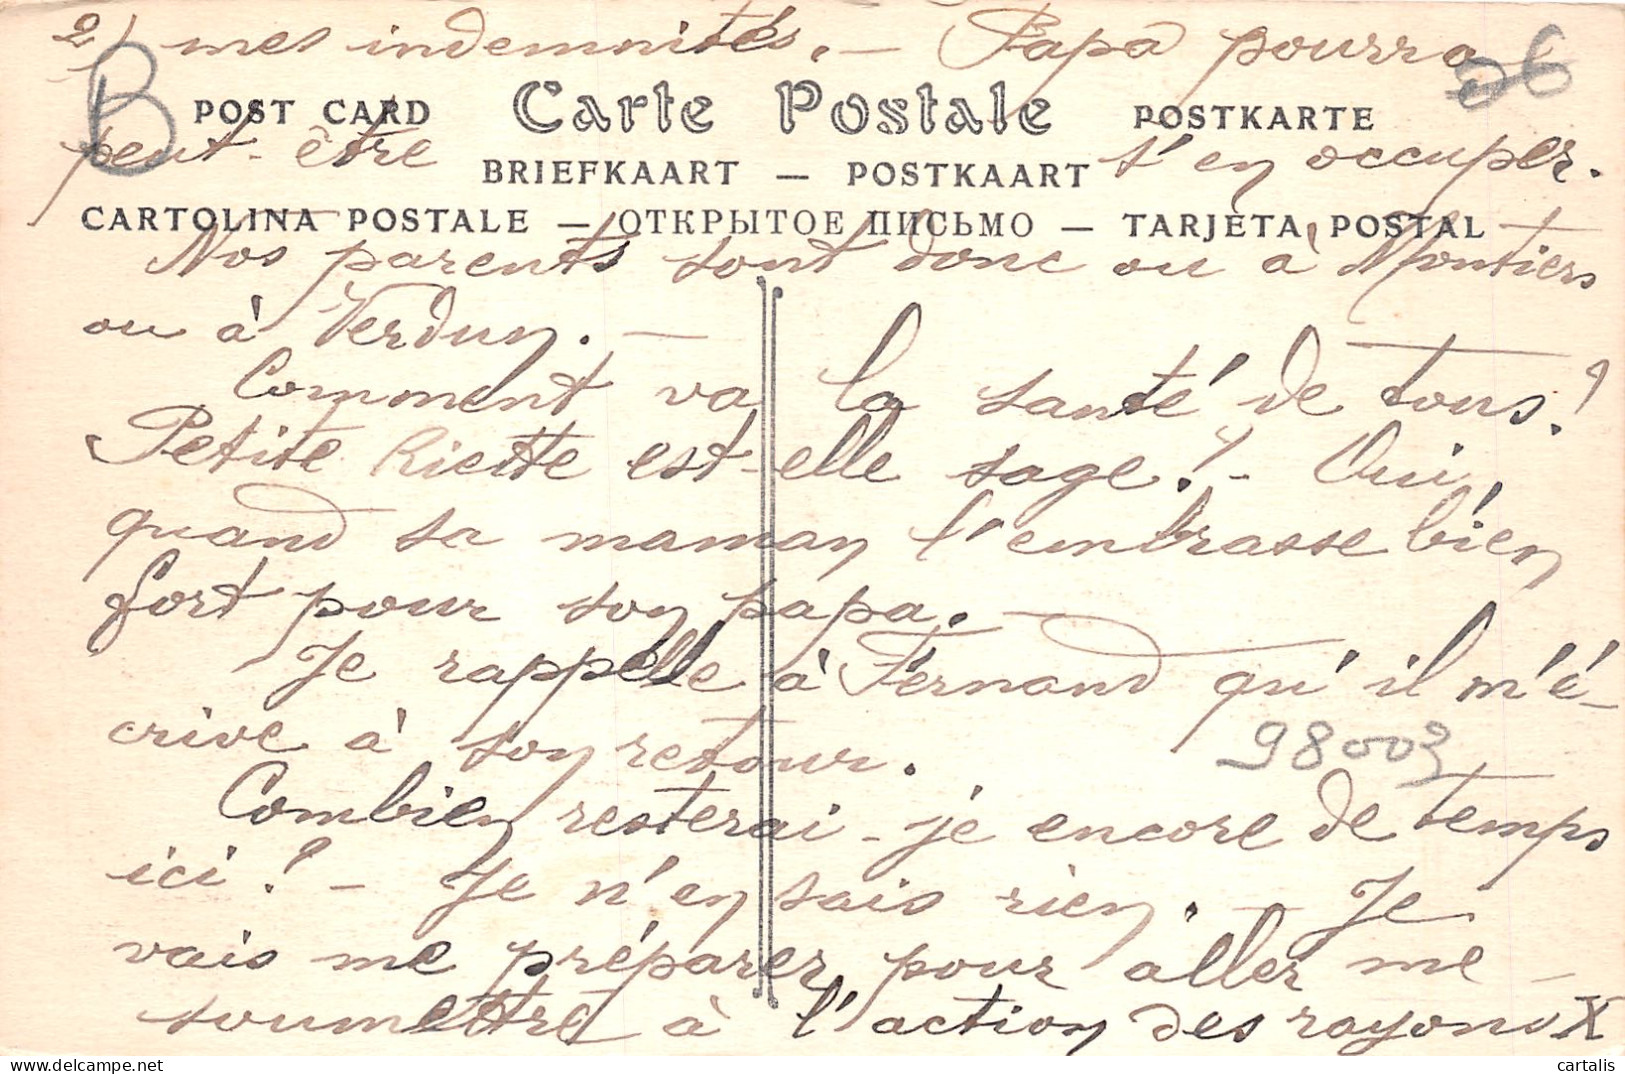 2) mes indemnités. — Papa pourra
B 26
POST CARD Carte Postale POSTKARTE
peut-être s'en occuper.
BRIEFKAART — POSTKAART
CARTOLINA POSTALE — ОТКРЫТОЕ ПИСЬМО — TARJETA POSTAL
Nos parents sont donc ou à Montiers
ou à Verdun. —
Comment va la santé de tous?
Petite Riette est-elle sage? - Oui,
quand sa maman l'embrasse bien
fort pour son papa. —
Je rappelle à Fernand qu'il m'é-
crive à son retour.
98003
Combien resterai-je encore de temps
ici? - Je n'en sais rien. — Je
vais me préparer pour aller me
soumettre à l'action des rayons X
cartalis